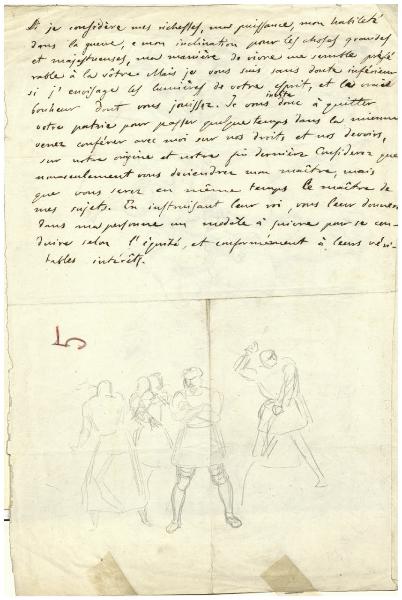 Si je considère mes richesses, ma puissance, mon habileté
dans la guerre, e mon inclination pour les choses grandes
et majestueuses, ma manière de vivre me semble préfé
rable à la vôtre. Mais je vous suis sans doute inférieur
si j'envisage les lumières de votre esprit, et le vrai
bonheur dont vous jouissez. Je vous invite donc à quitter
votre patrie pour passer quelque temps dans la mienne
venez conférer avec moi sur nos droits, et nos devoirs,
sur notre origine et notre fin dernière. Considérez que
nonseulement vous deviendrez mon maître, mais
que vous serez en même temps le maître de
mes sujets. En instruisant leur roi, vous leur donnerez
dans ma personne un modèle à suivre pour se con
duire selon l'équité, et conformément à leurs véri
tables intérêts.
5